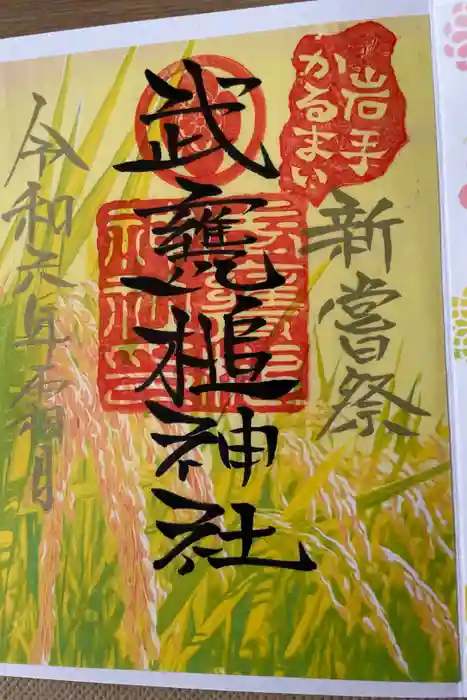 岩手
かるまい
新嘗祭
武甕槌神社
令和元年霜月